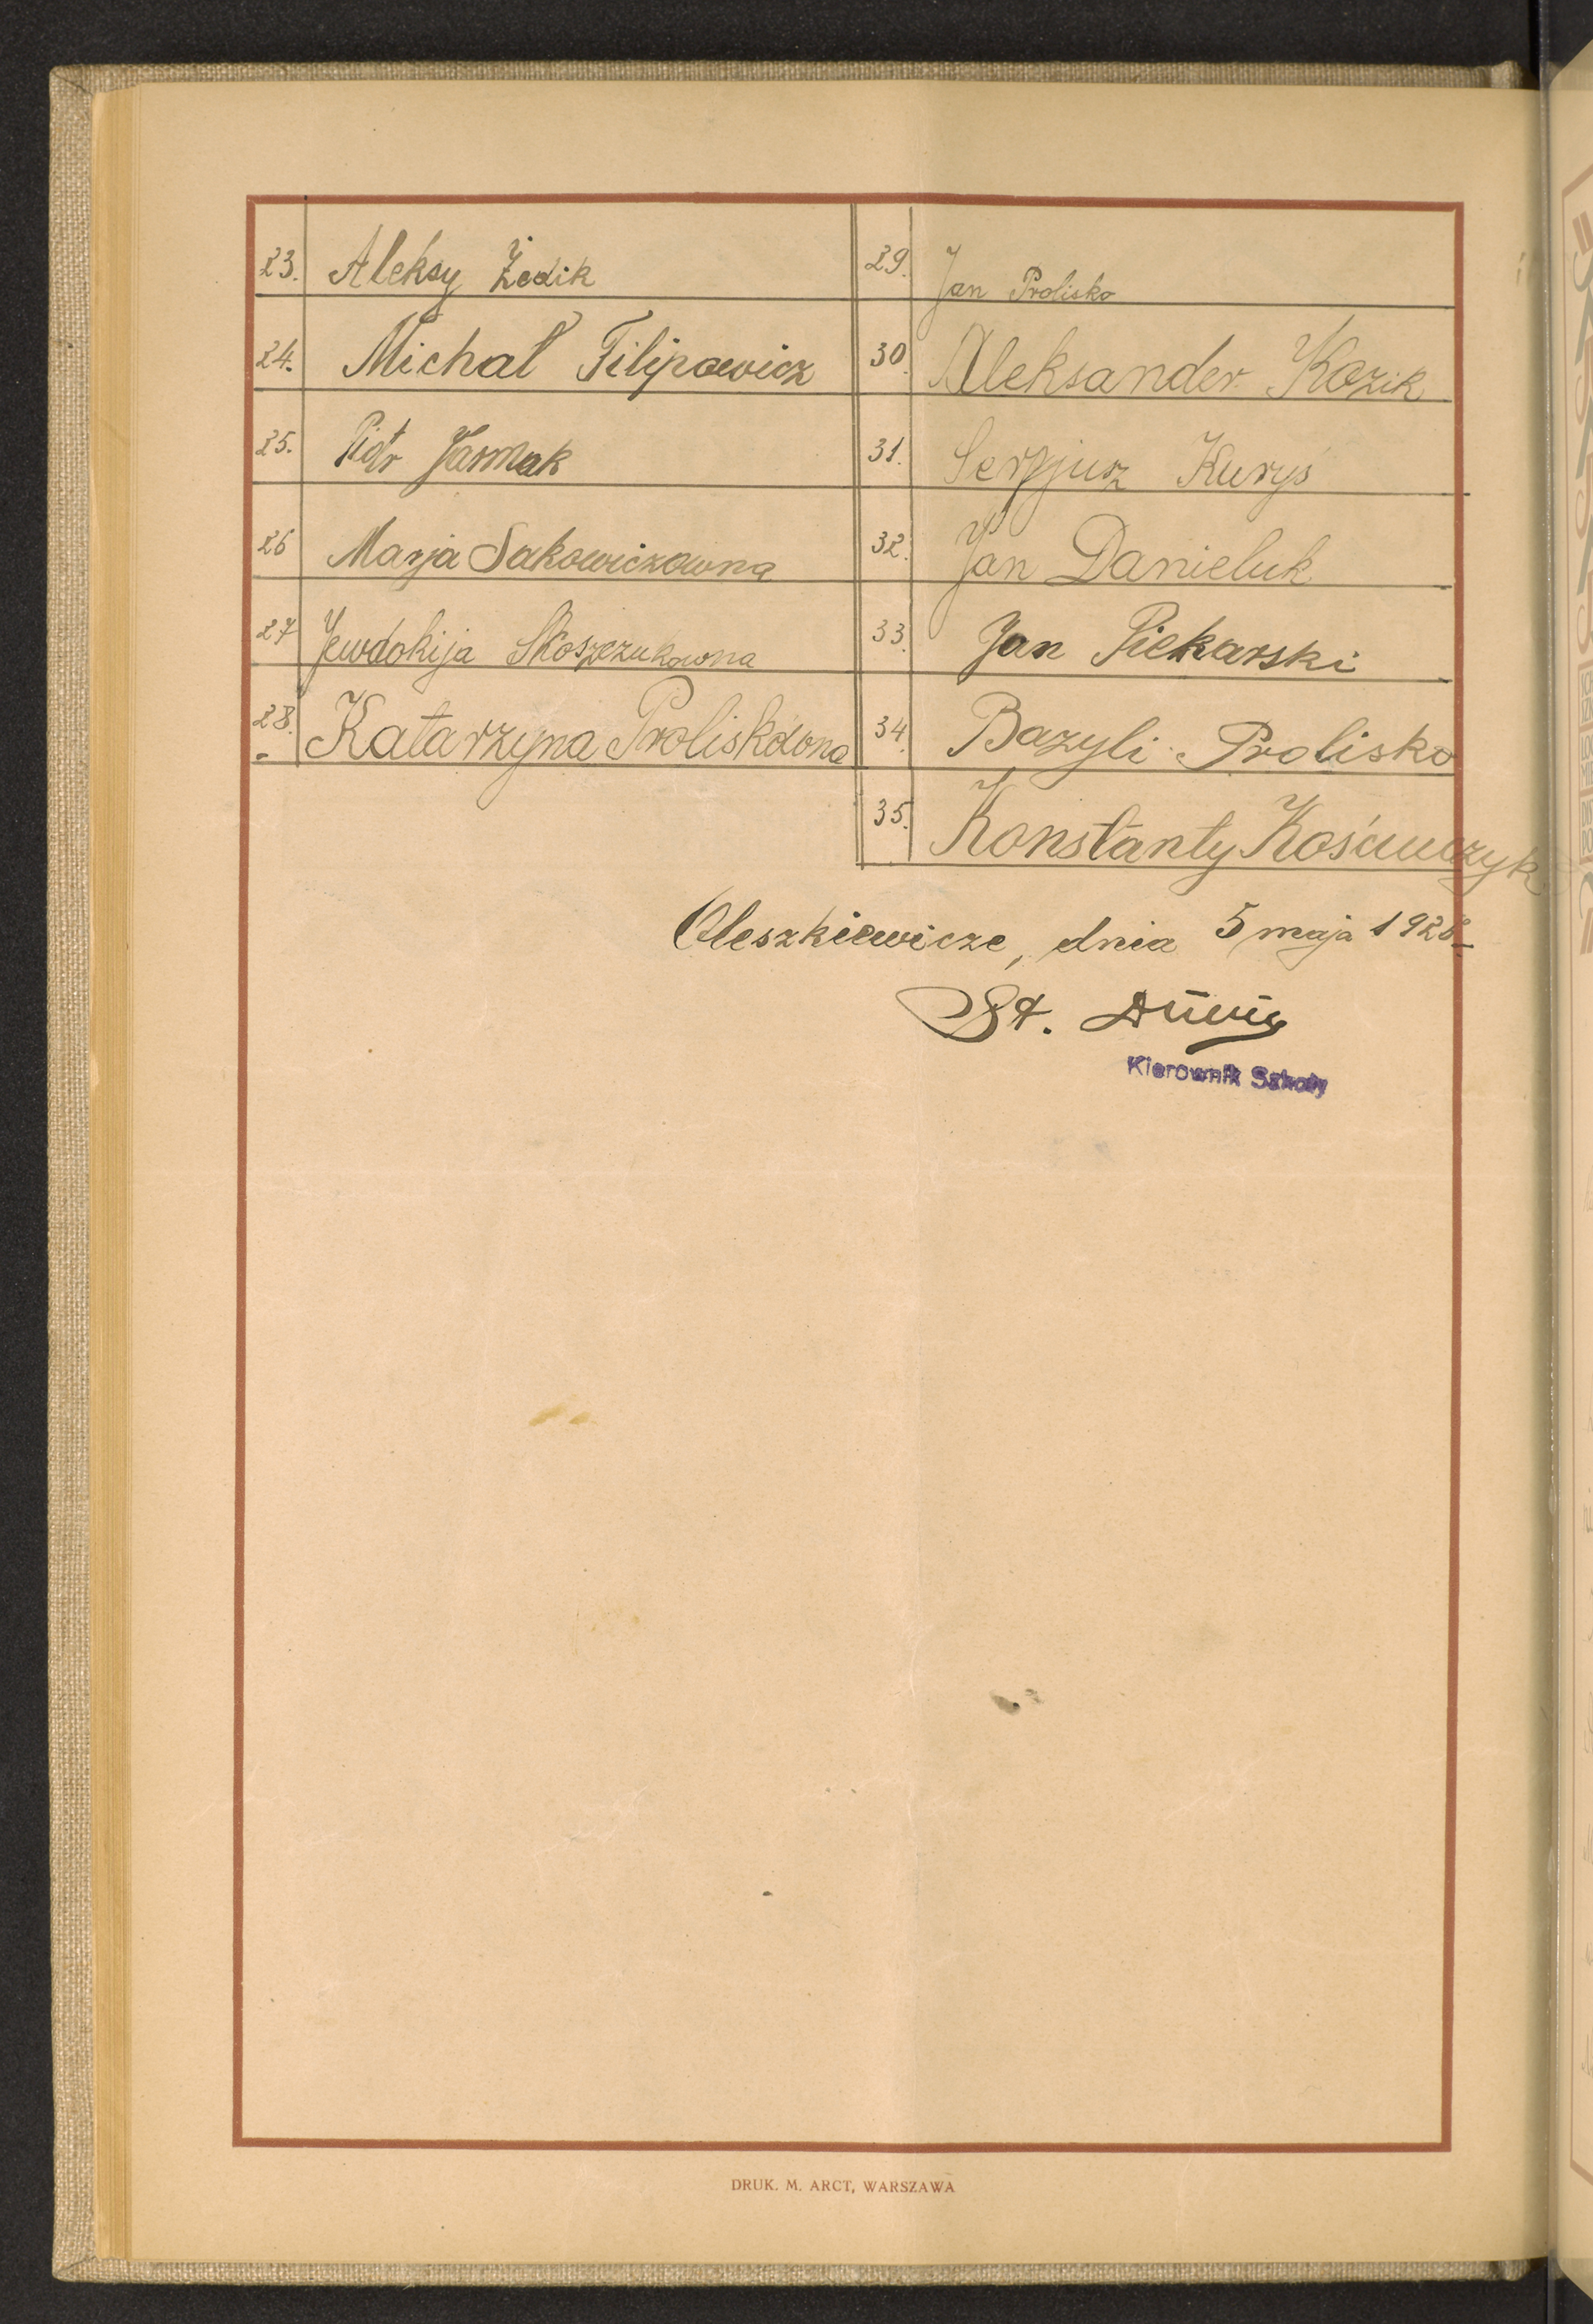 23. Aleksy Żedik
24. Michał Filipowicz
25. Piotr Jarmak
26 Marja Sakowiczowna
27 Jewdokija Skoszczukowna
28. Katarzyna Proliskówna
29. Jan Prolisko
30. Aleksander Kozik
31. Sergjusz Kuryś
32. Jan Danieluk
33. Jan Piekarski
34. Bazyli Prolisko
35. Konstanty
Oleszkiewicze, dnia 5 maja 1926
St.
Kierownik Szkoły
DRUK. M. ARCT, WARSZAWA